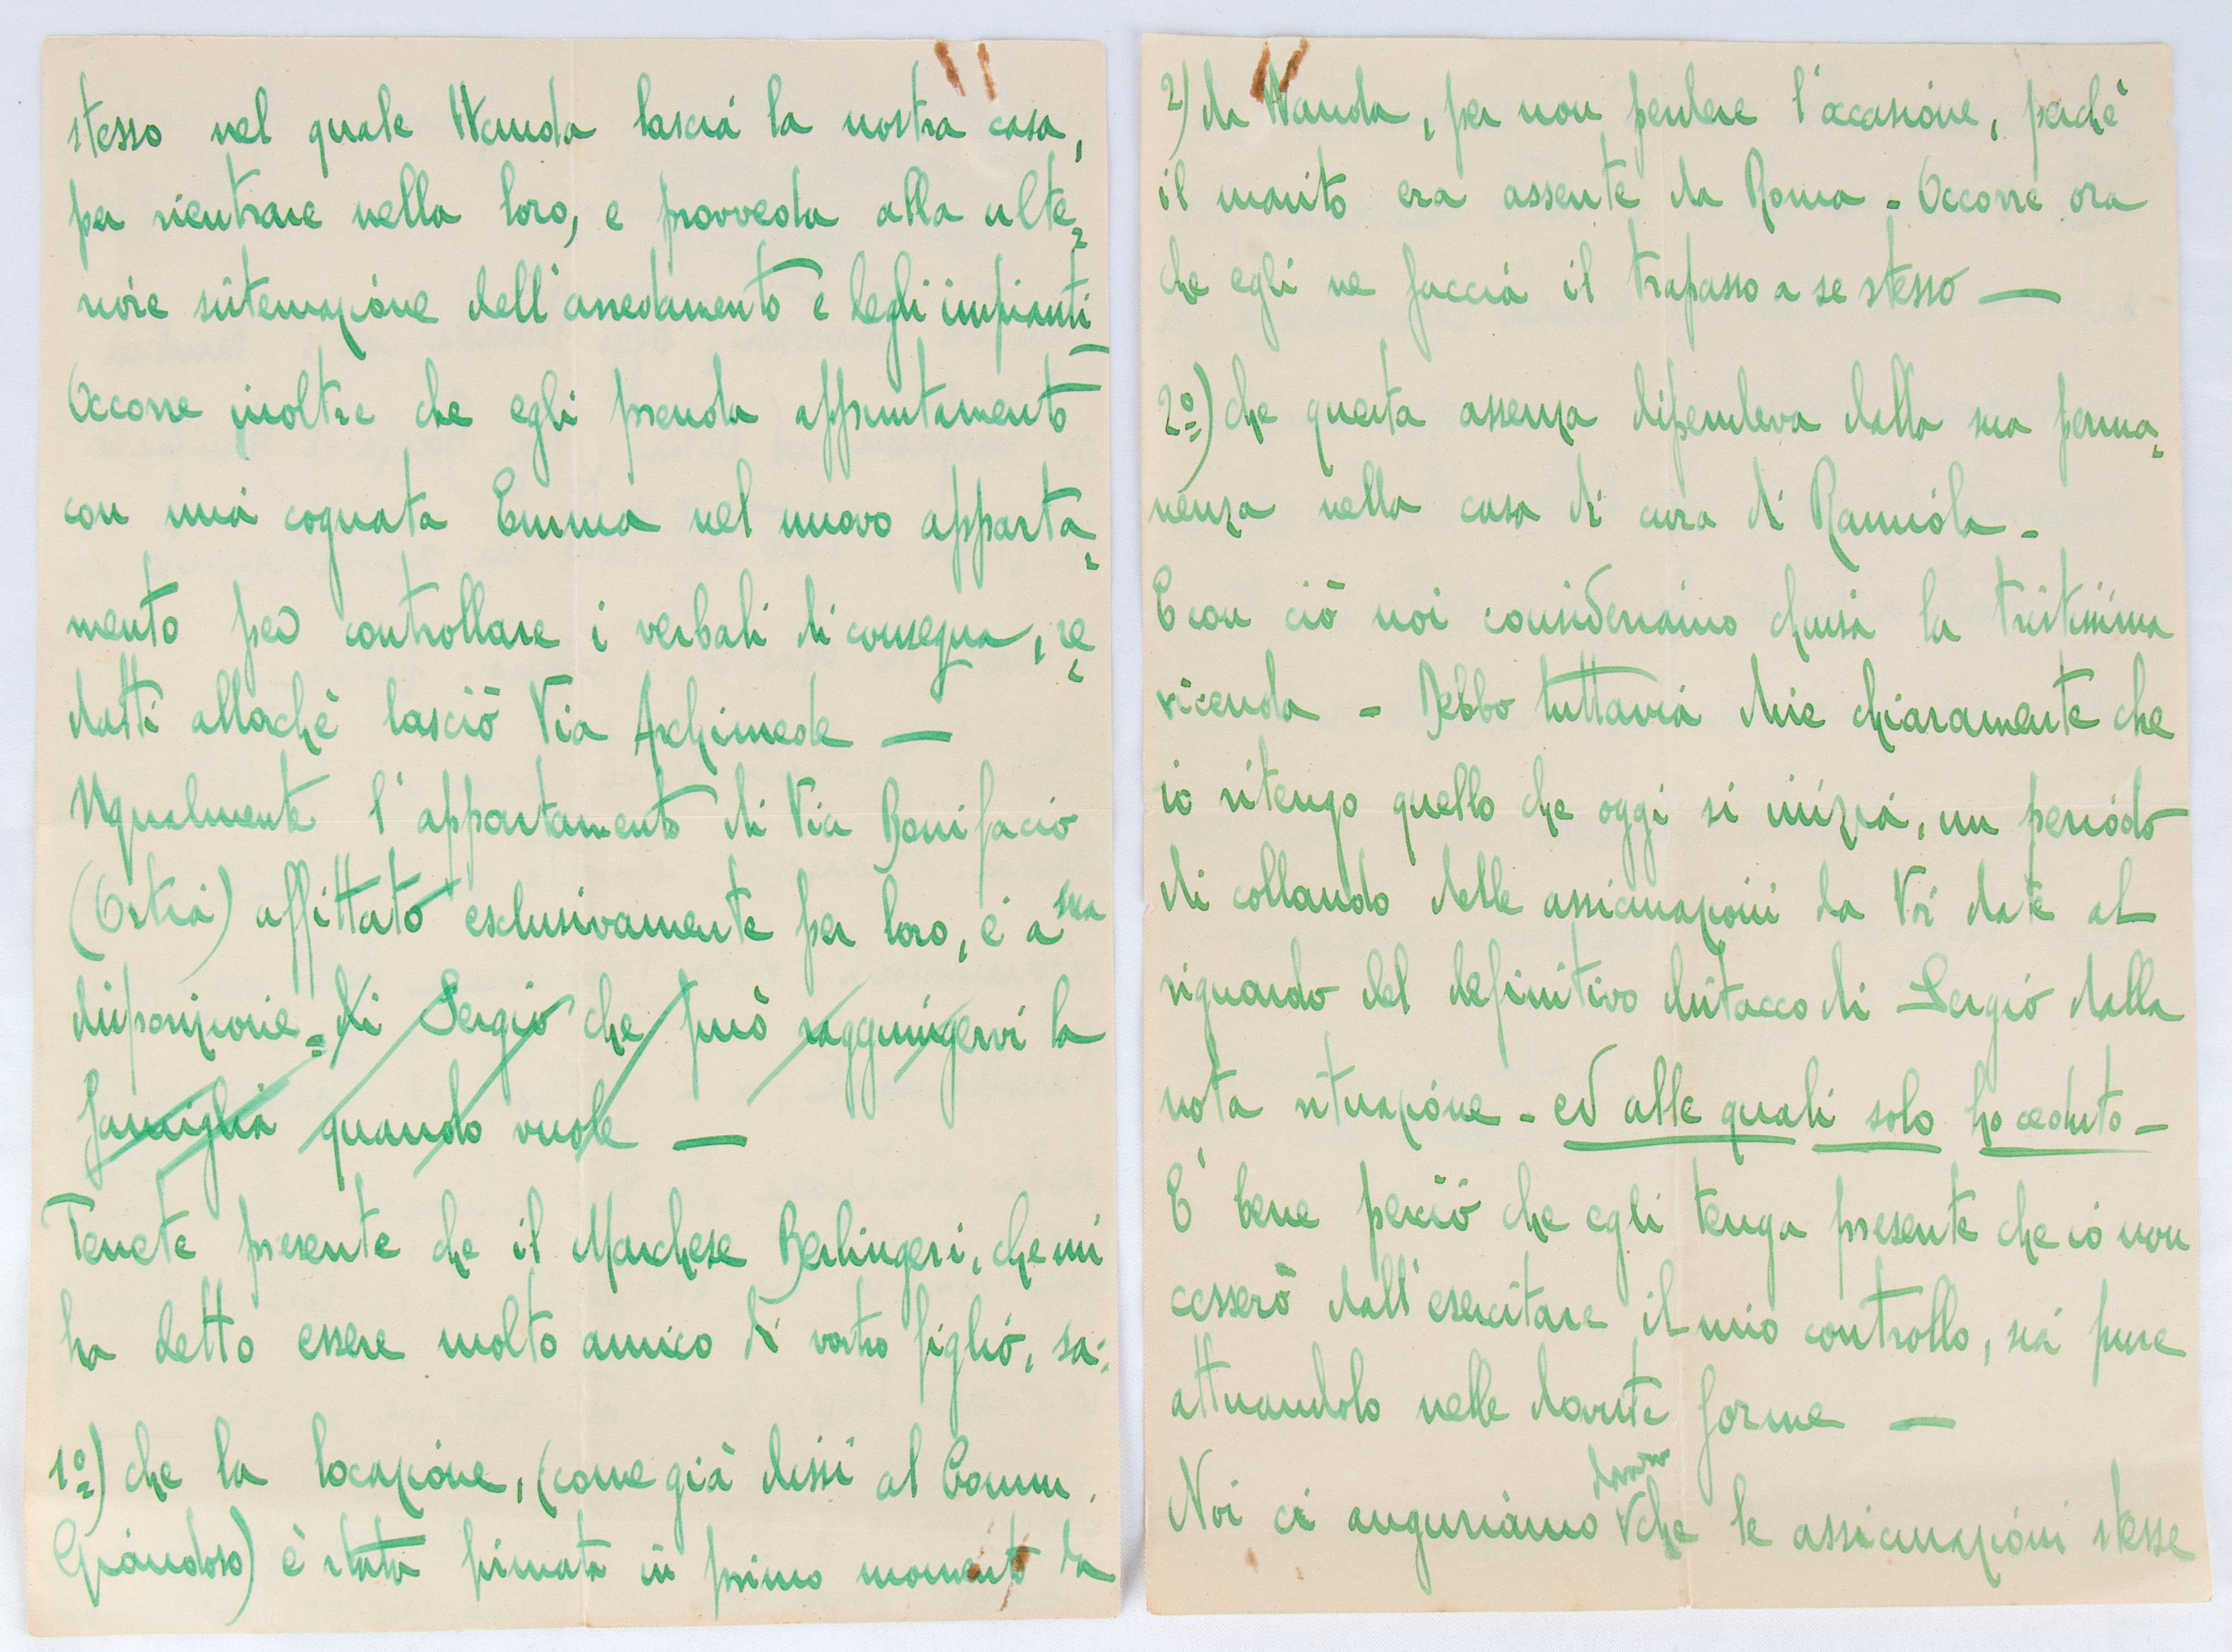 stesso nel quale Wanda lascia la nostra casa,
per rientrare nella loro, e provveda alla ulte=
riore sistemazione dell'arredamento e degli impianti
Occorre inoltre che egli prenda appuntamento
con mia cognata Emma nel nuovo apparta=
mento per controllare i verbali di consegna, re=
datti allorchè lasciò Via Archimede —
Ugualmente l'appartamento di Via Bonifacio
(Ostia) affittato esclusivamente per loro, è a sua
disposizione = di Sergio che può raggiungervi la
famiglia quando vuole —
Tenete presente che il Marchese Berlingeri, che mi
ha detto essere molto amico di vostro figlio, sa:
1º) che la locazione, (come già dissi al Comm.
) è stata firmata in primo momento da
2) da Wanda, per non perdere l'occasione, perchè
il marito era assente da Roma - Occorre ora
che egli ne faccia il trapasso a se stesso —
2º) che questa assenza dipendeva dalla sua perma=
nenza nella casa di cura di Ramiola -
E con ciò noi consideriamo chiusa la tristissima
vicenda - Debbo tuttavia dire chiaramente che
io ritengo quello che oggi si inizia, un periodo
di collaudo delle assicurazioni da Voi date al
riguardo del definitivo distacco di Sergio dalla
nota situazione - ed alle quali solo ho ceduto -
E' bene perciò che egli tenga presente che io non
cesserò dall'esercitare il mio controllo, sia pure
attuandolo nelle dovute forme —
Noi ci auguriamo davvero che le assicurazioni stesse